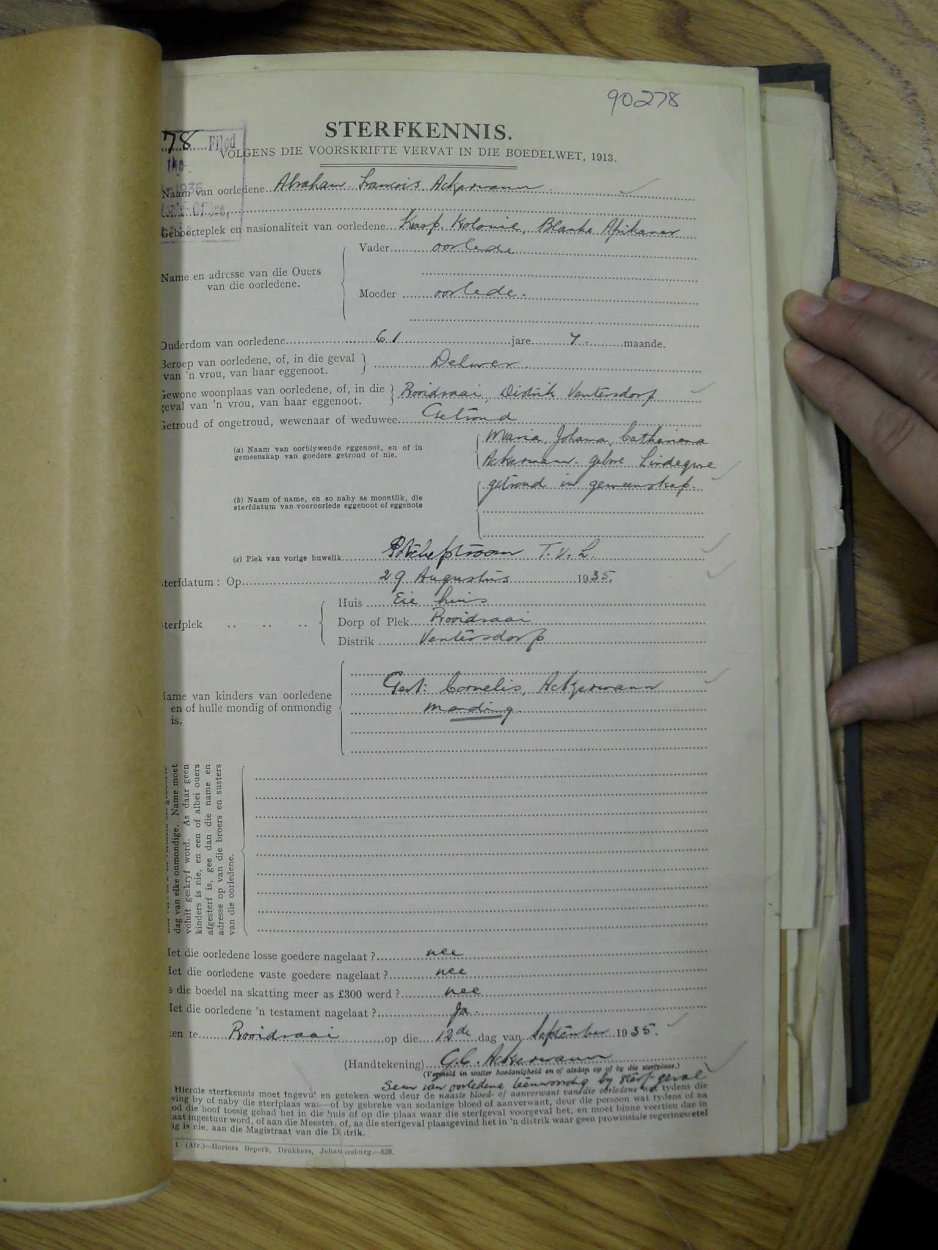 90278
78 Filed
STERFKENNIS.
VOLGENS DIE VOORSKRIFTE VERVAT IN DIE BOEDELWET, 1913.
Naam van oorledene Abraham Francois Ackermann
Geboorteplek en nasionaliteit van oorledene Kaap Kolonie, Blanke Afrikaner
Name en adresse van die Ouers van die oorledene.
Vader oorlede
Moeder oorlede.
Ouderdom van oorledene 61 jare 7 maande.
Beroep van oorledene, of, in die geval van 'n vrou, van haar eggenoot. Delwer
Gewone woonplaas van oorledene, of, in die geval van 'n vrou, van haar eggenoot. Rooidraai, Distrik Ventersdorp
Getroud of ongetroud, wewenaar of weduwee Getroud
(a) Naam van oorblywende eggenoot, en of in gemeenskap van goedere getroud of nie.
Maria Johana Catheriena
Ackermann gebore Lindeque
getroud in gemeenskap.
(b) Naam of name, en so naby as moontlik, die sterfdatum van vooroorlede eggenoot of eggenote
(c) Plek van vorige huwelik Potchefstroom T.V.L
Sterfdatum: Op 29 Augustus 1935.
Sterfplek
Huis Eie huis
Dorp of Plek Rooidraai
Distrik Ventersdorp
Name van kinders van oorledene en of hulle mondig of onmondig is.
Gert Cornelis, Ackermann
mondig
dag van elke onmondige. Name moet
voluit geskryf word. As daar geen
kinders is nie, en een of albei ouers
afgesterf is, gee dan die name en
adresse op van die broers en susters
van die oorledene.
Het die oorledene losse goedere nagelaat? nee
Het die oorledene vaste goedere nagelaat? nee
Is die boedel na skatting meer as £300 werd? nee
Het die oorledene 'n testament nagelaat? Ja
ten te Rooidraai op die 12de dag van September 1935.
(Handtekening) G.C. Ackermann
(Vermeld in watter hoedanigheid en of aldan op of by die sterfplaas.)
Seun van oorledene teenwoordig by sterfgeval
Hierdie sterfkennis moet ingevul en geteken word deur de naaste bloed- of aanverwant van die oorledene tydens die
ving by of naby die sterfplaas was—of by gebreke van sodanige bloed of aanverwant, deur die persoon wat tydens of na
od die hoof toesig gehad het in die huis of op die plaas waar die sterfgeval voorgeval het, en moet binne veertien dae in
aat ingestuur word, of aan die Meester, of, as die sterfgeval plaasgevind het in 'n distrik waar geen provinsiale regeringsetel
ig is nie, aan die Magistraat van die Distrik.
1 (Afr.)—Hortors Beperk, Drukkers, Johannesburg.—628.